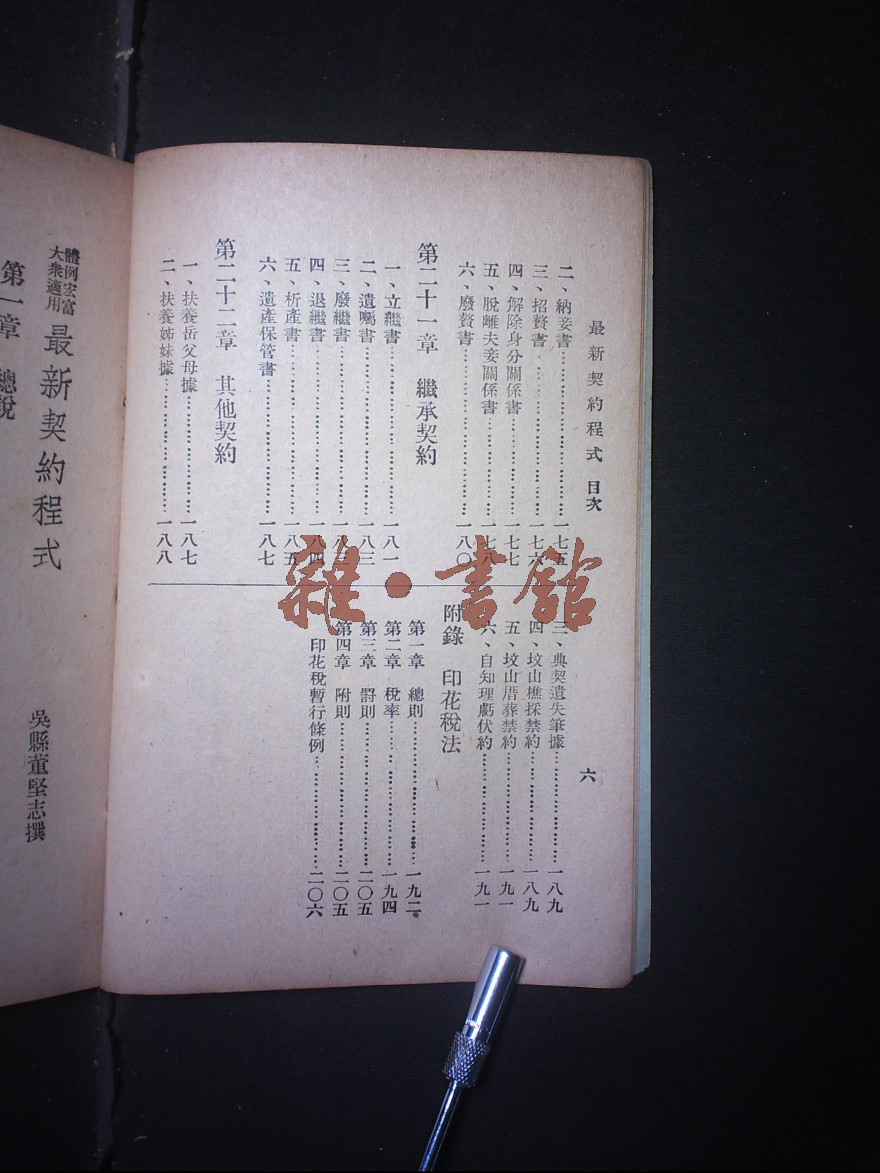 最新契約程式　目次
二、納妾書……一七五
三、招贅書……一七六
四、解除身分關係書……一七七
五、脫離夫妾關係書……一七八
六、廢贅書……一八〇
第二十一章　繼承契約
一、立繼書……一八一
二、遺囑書……一八三
三、廢繼書……一八三
四、退繼書……一八四
五、析產書……一八五
六、遺產保管書……一八七
第二十二章　其他契約
一、扶養岳父母據……一八七
二、扶養姊妹據……一八八
三、典契遺失筆據……一八九
四、坟山樵採禁約……一八九
五、坟山厝葬禁約……一九一
六、自知理虧伏約……一九一
附錄　印花稅法
第一章　總則……一九二
第二章　稅率……一九四
第三章　罸則……二〇五
第四章　附則……二〇五
印花稅暫行條例……二〇六
六
體例宏富
大衆適用
最新契約程式
吳縣董堅志撰
第一章　總說
雜·書館